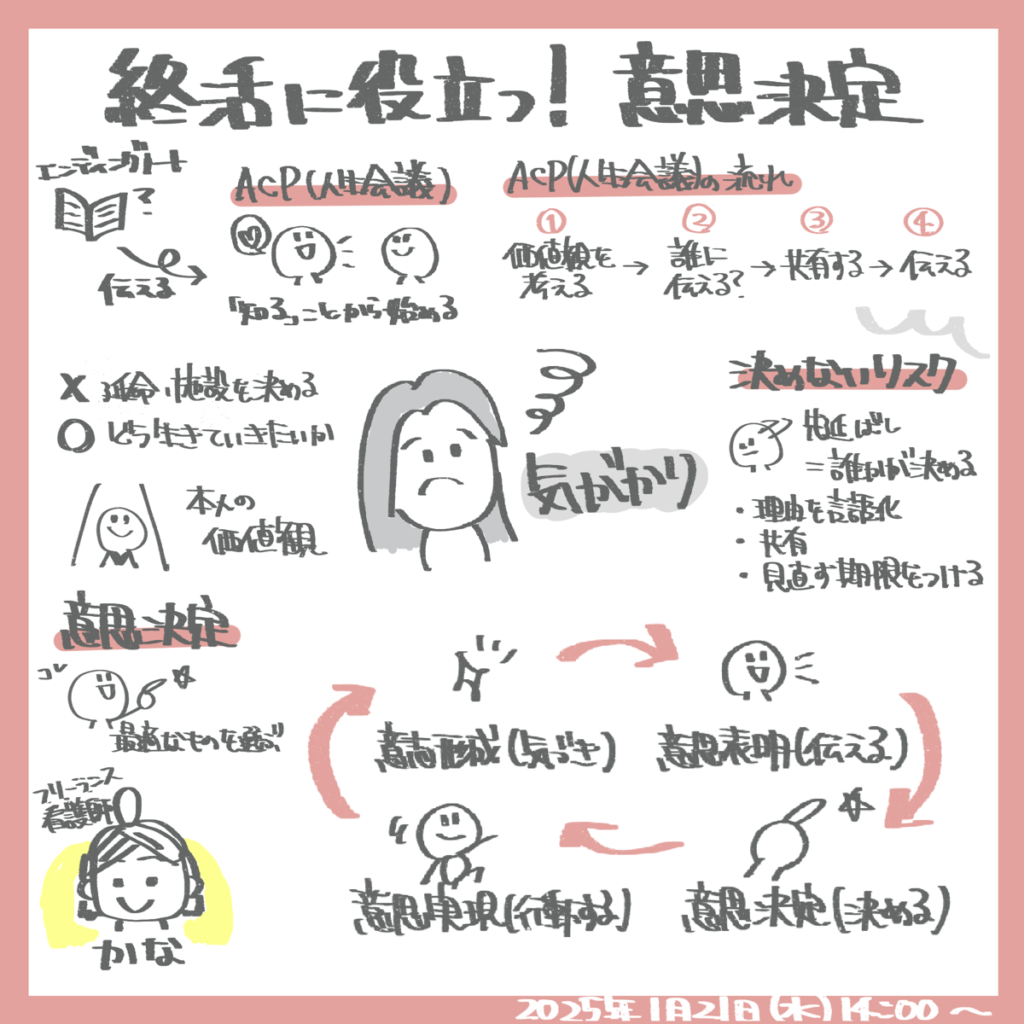 終活に役立つ! 意思決定
エンディングノート
?
伝える
ACP(人生会議)
「知る」ことから始める
ACP(人生会議)の流れ
① ② ③ ④
価値観を考える → 誰に伝える? → 共有する → 伝える
X 延命・施設を決める
O どう生きていきたいか
本人の
価値観
気がかり
決めないリスク
先延ばし
=誰かが決める
・理由を言語化
・共有
・見直す期限をつける
意思決定
コレ
最適なものを選ぶ
意志形成(気づき)
意思表明(伝える)
意思決定(決める)
意思実現(行動する)
フリーランス
看護師
かな
2025年1月21日(水)14:00〜